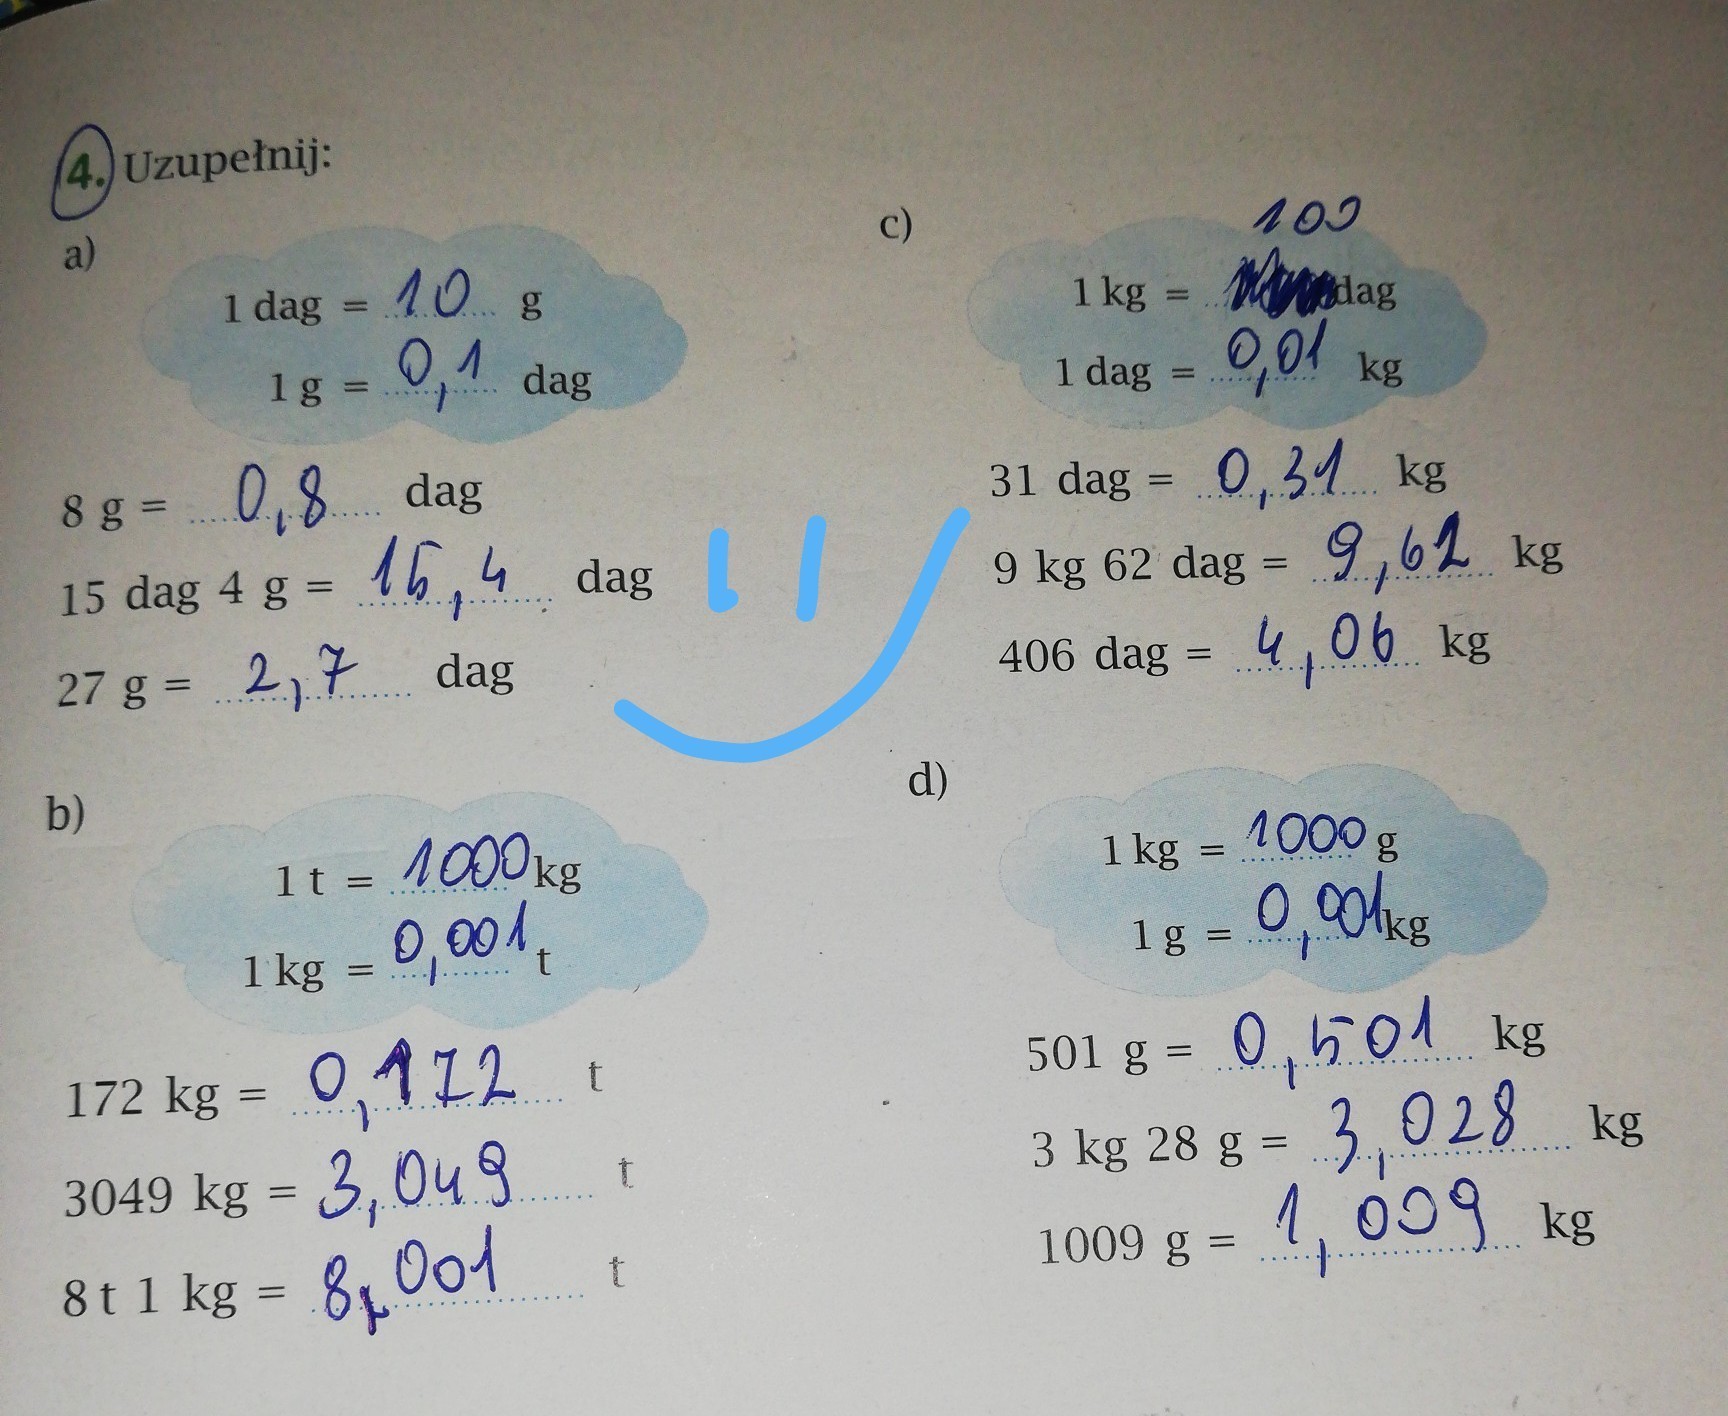 4. Uzupełnij:
a)
1 dag = 10 g
1 g = 0,1 dag
8 g = 0,8 dag
15 dag 4 g = 15,4 dag
27 g = 2,7 dag
b)
1 t = 1000 kg
1 kg = 0,001 t
172 kg = 0,172 t
3049 kg = 3,049 t
8 t 1 kg = 8,001 t
c)
100
1 kg = dag
1 dag = 0,01 kg
31 dag = 0,31 kg
9 kg 62 dag = 9,62 kg
406 dag = 4,06 kg
d)
1 kg = 1000 g
1 g = 0,001 kg
501 g = 0,501 kg
3 kg 28 g = 3,028 kg
1009 g = 1,009 kg